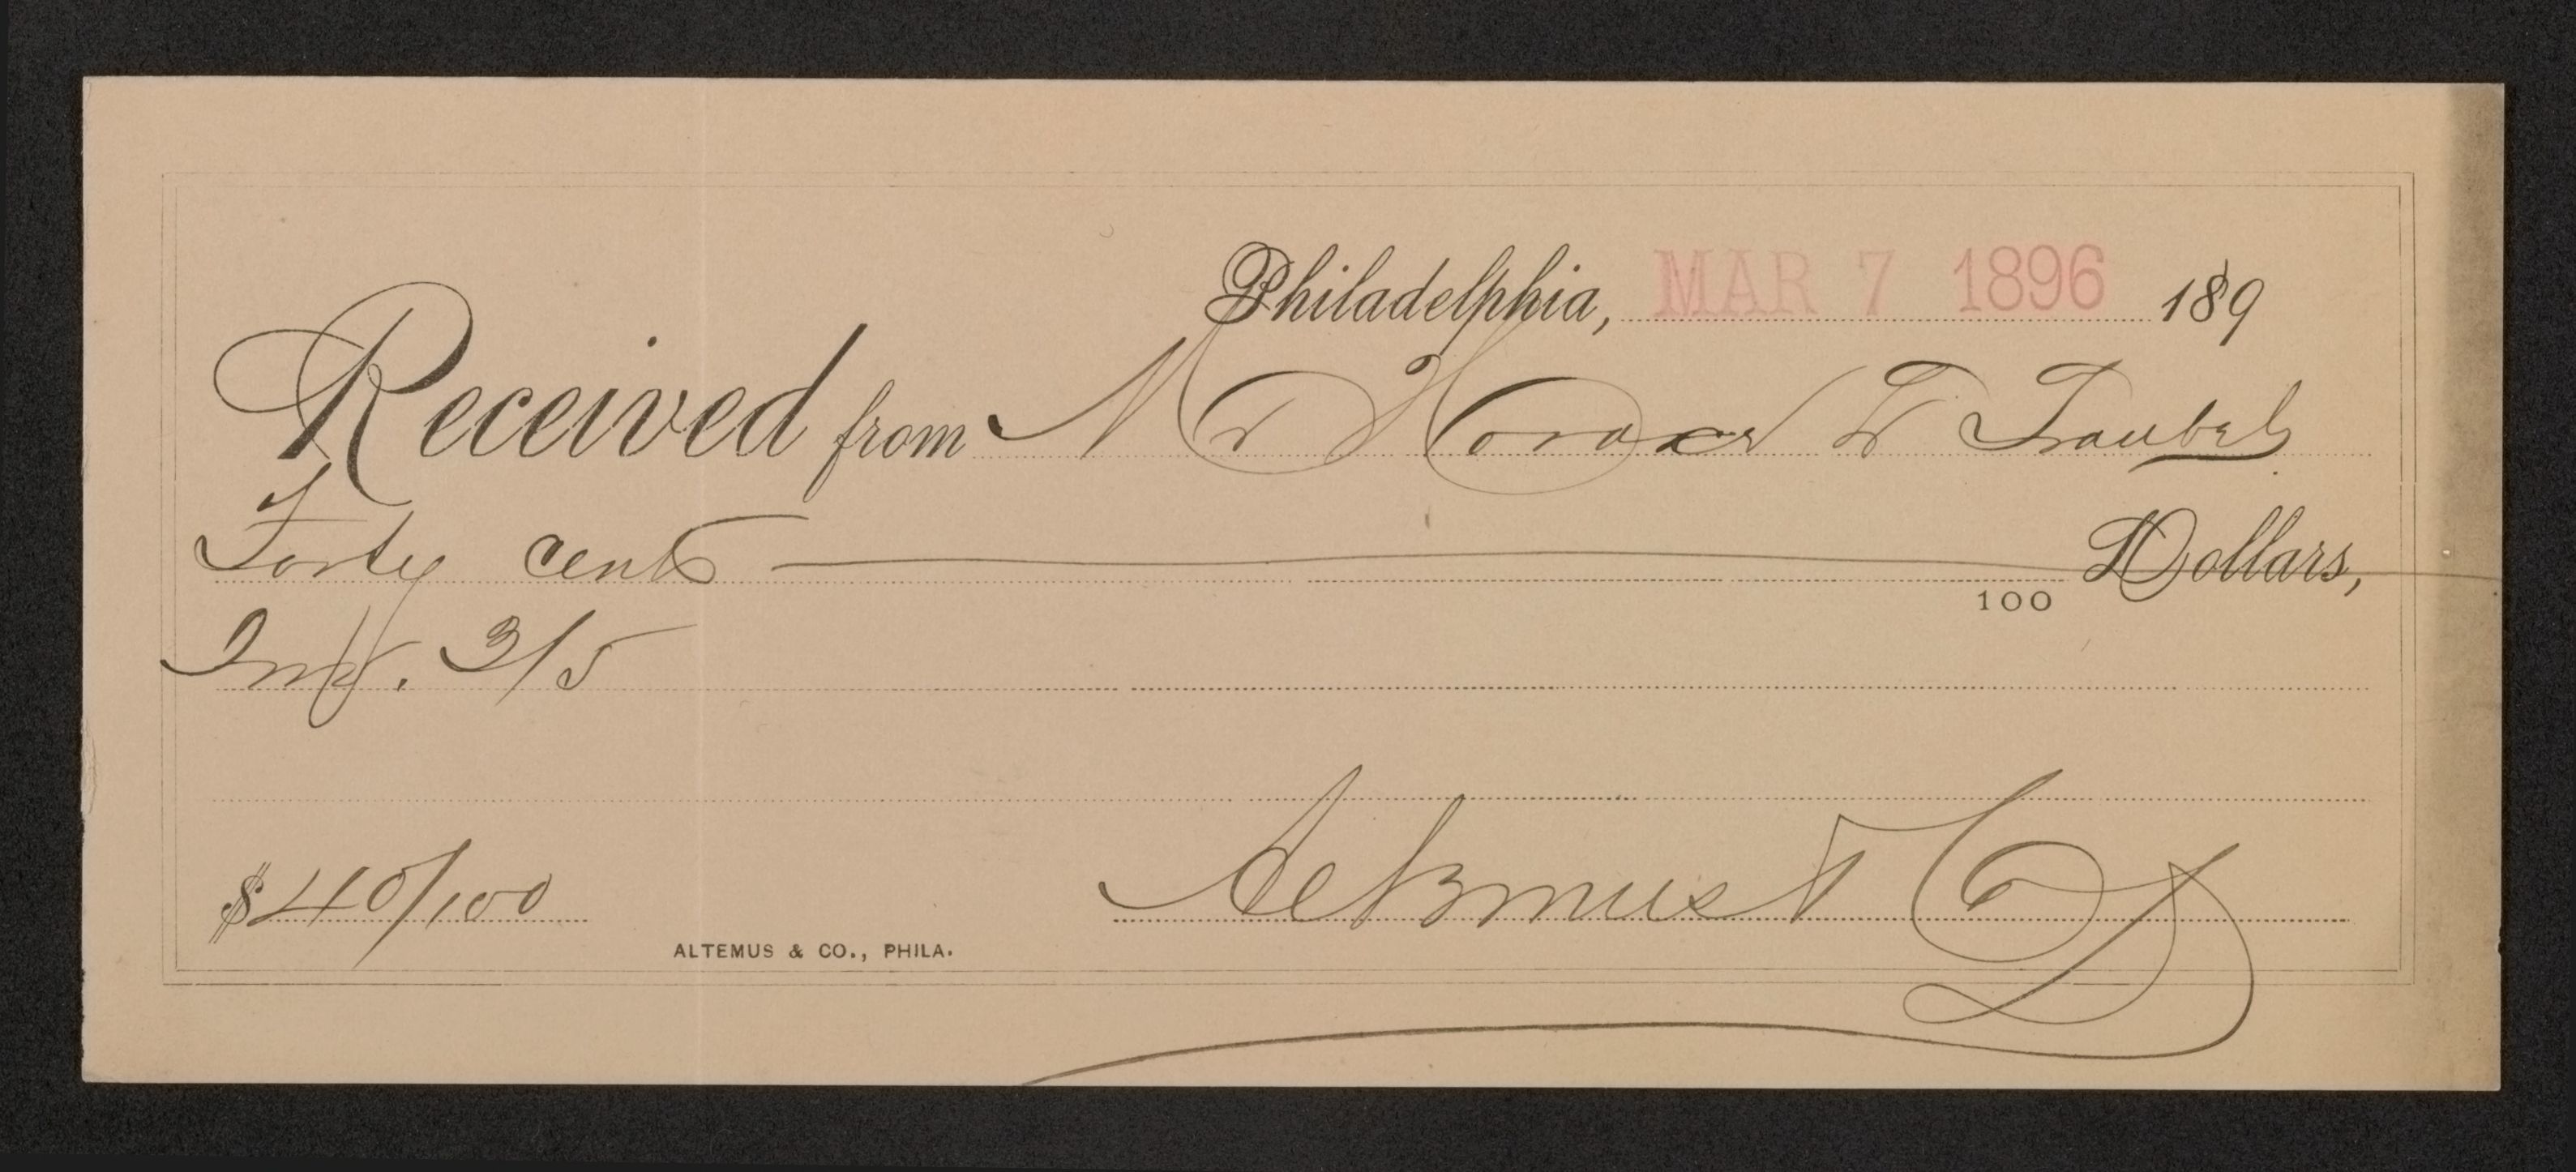 Philadelphia, MAR 7 1896 189
Received from Mr Horace L Traubel
Forty cents 100 Dollars,
Inv. 3/5
$ 40/100 Altemus & Co
ALTEMUS & CO., PHILA.